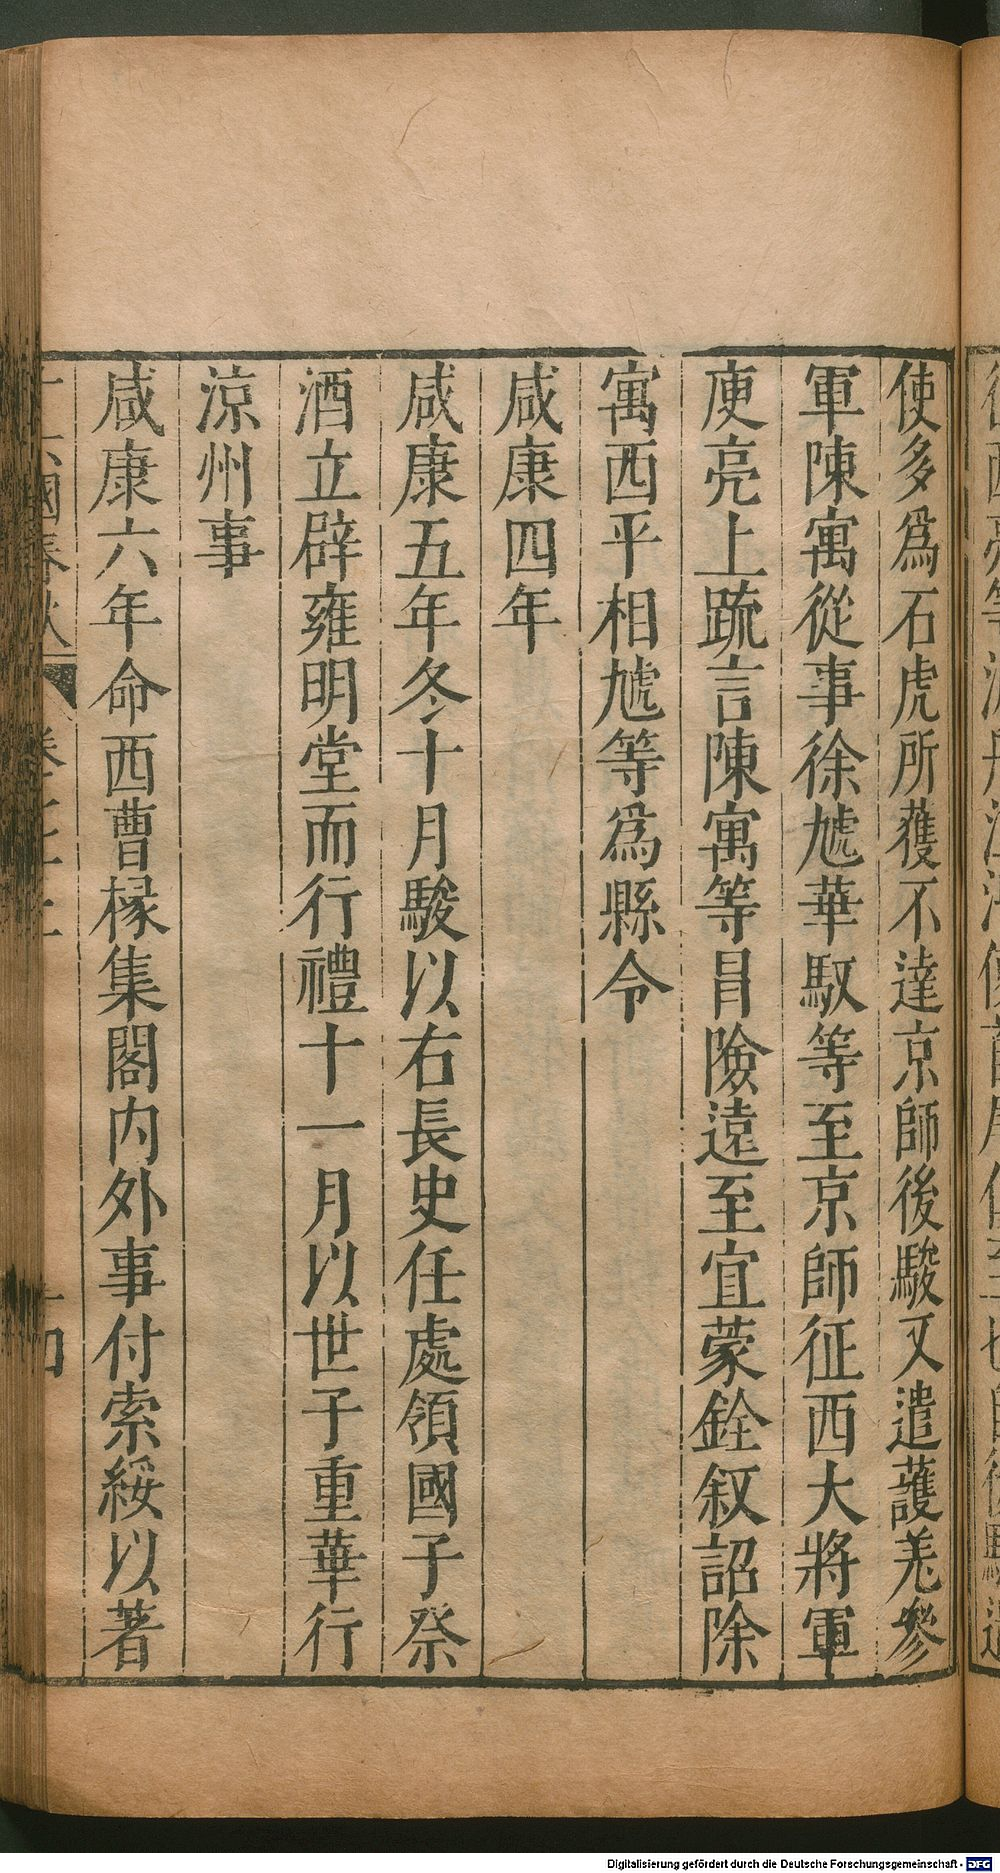 使多爲石虎所獲不達京師後駿又遣護羌參
軍陳寓從事徐虓華馭等至京師征西大將軍
庾亮上疏言陳寓等冒險遠至宜蒙銓叙詔除
寓西平相虓等爲縣令
咸康四年
咸康五年冬十月駿以右長史任處領國子祭
酒立辟雍明堂而行禮十一月以世子重華行
涼州事
咸康六年命西曹掾集閣内外事付索綏以著
十六國春秋
Digitalisierung gefördert durch die Deutsche Forschungsgemeinschaft - DFG